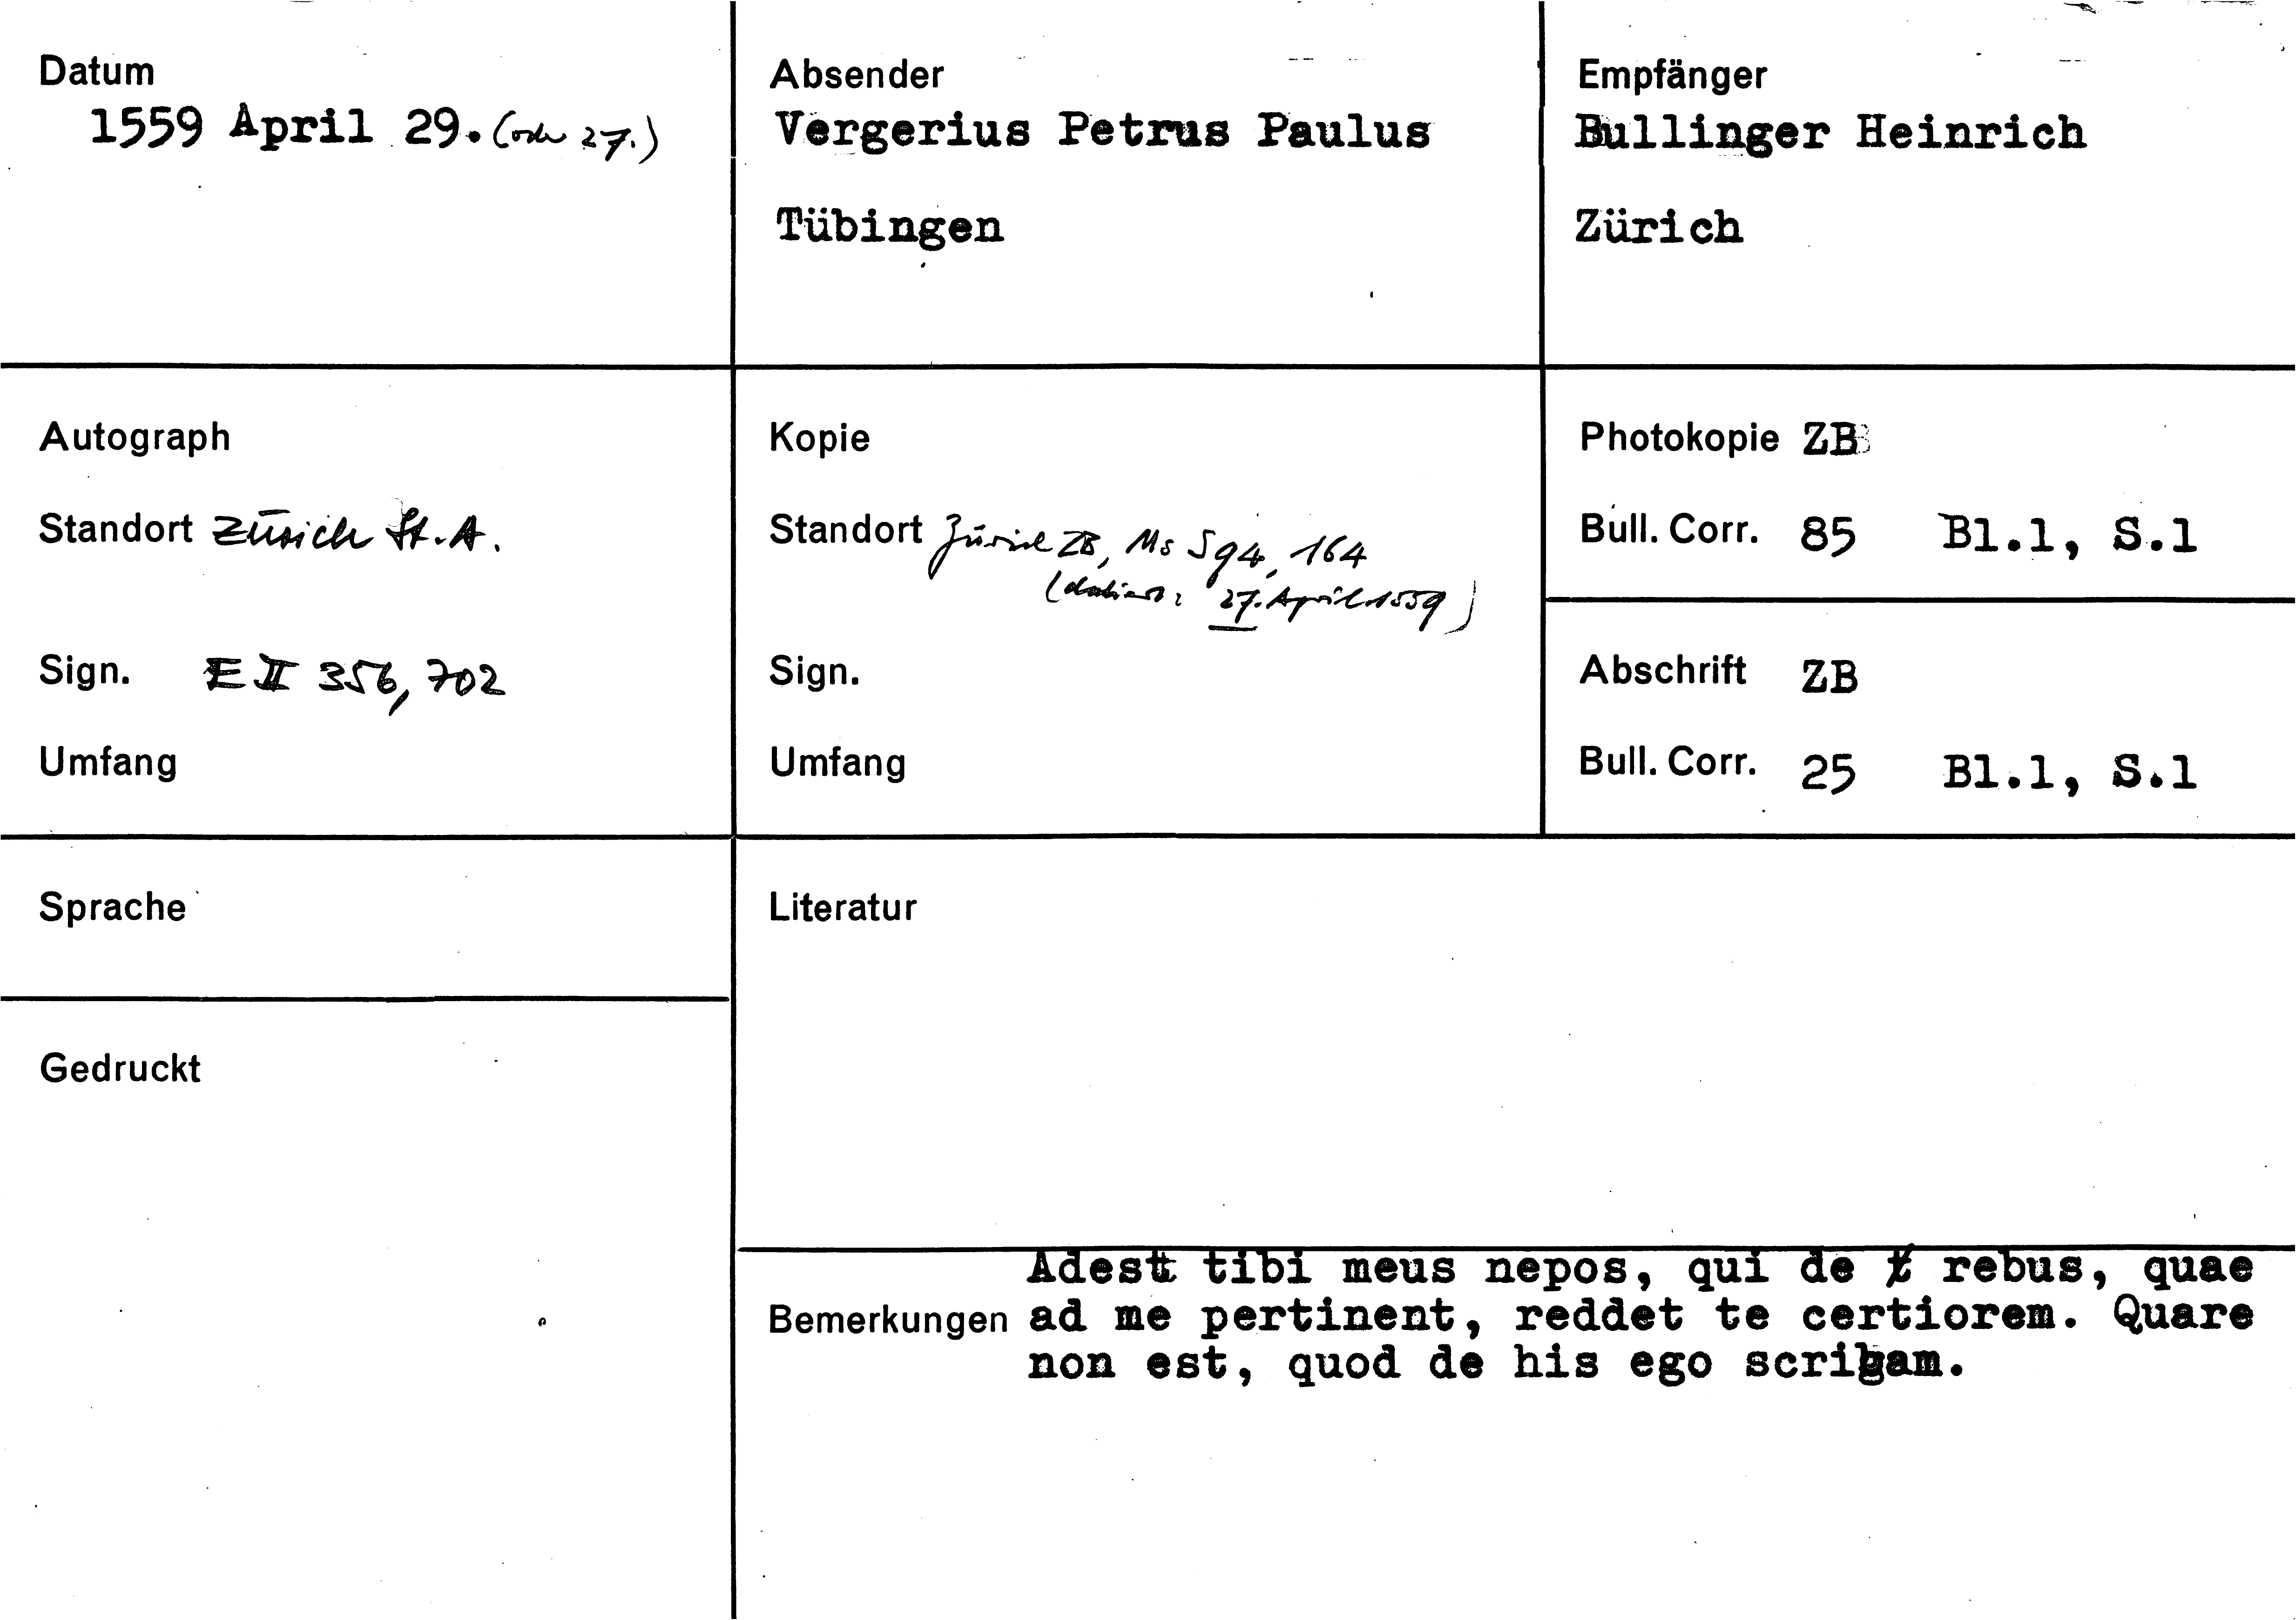 Datum
1559 April 29. (oder 27.)
Absender
Vergerius Petrus Paulus
Tübingen
Empfänger
Bullinger Heinrich
Zürich
Autograph
Standort Zürich St.A.
Sign. E II 356, 702
Umfang
Kopie
Standort Zürich ZB, Ms S 94, 164
(datiert: 27. April 1559)
Sign.
Umfang
Photokopie ZB
Bull. Corr. 85 Bl.1, S.1
Abschrift ZB
Bull. Corr. 25 Bl.1, S.1
Sprache
Gedruckt
Literatur
Bemerkungen
Adest tibi meus nepos, qui de rebus, quae
ad me pertinent, reddet te certiorem. Quare
non est, quod de his ego scribam.